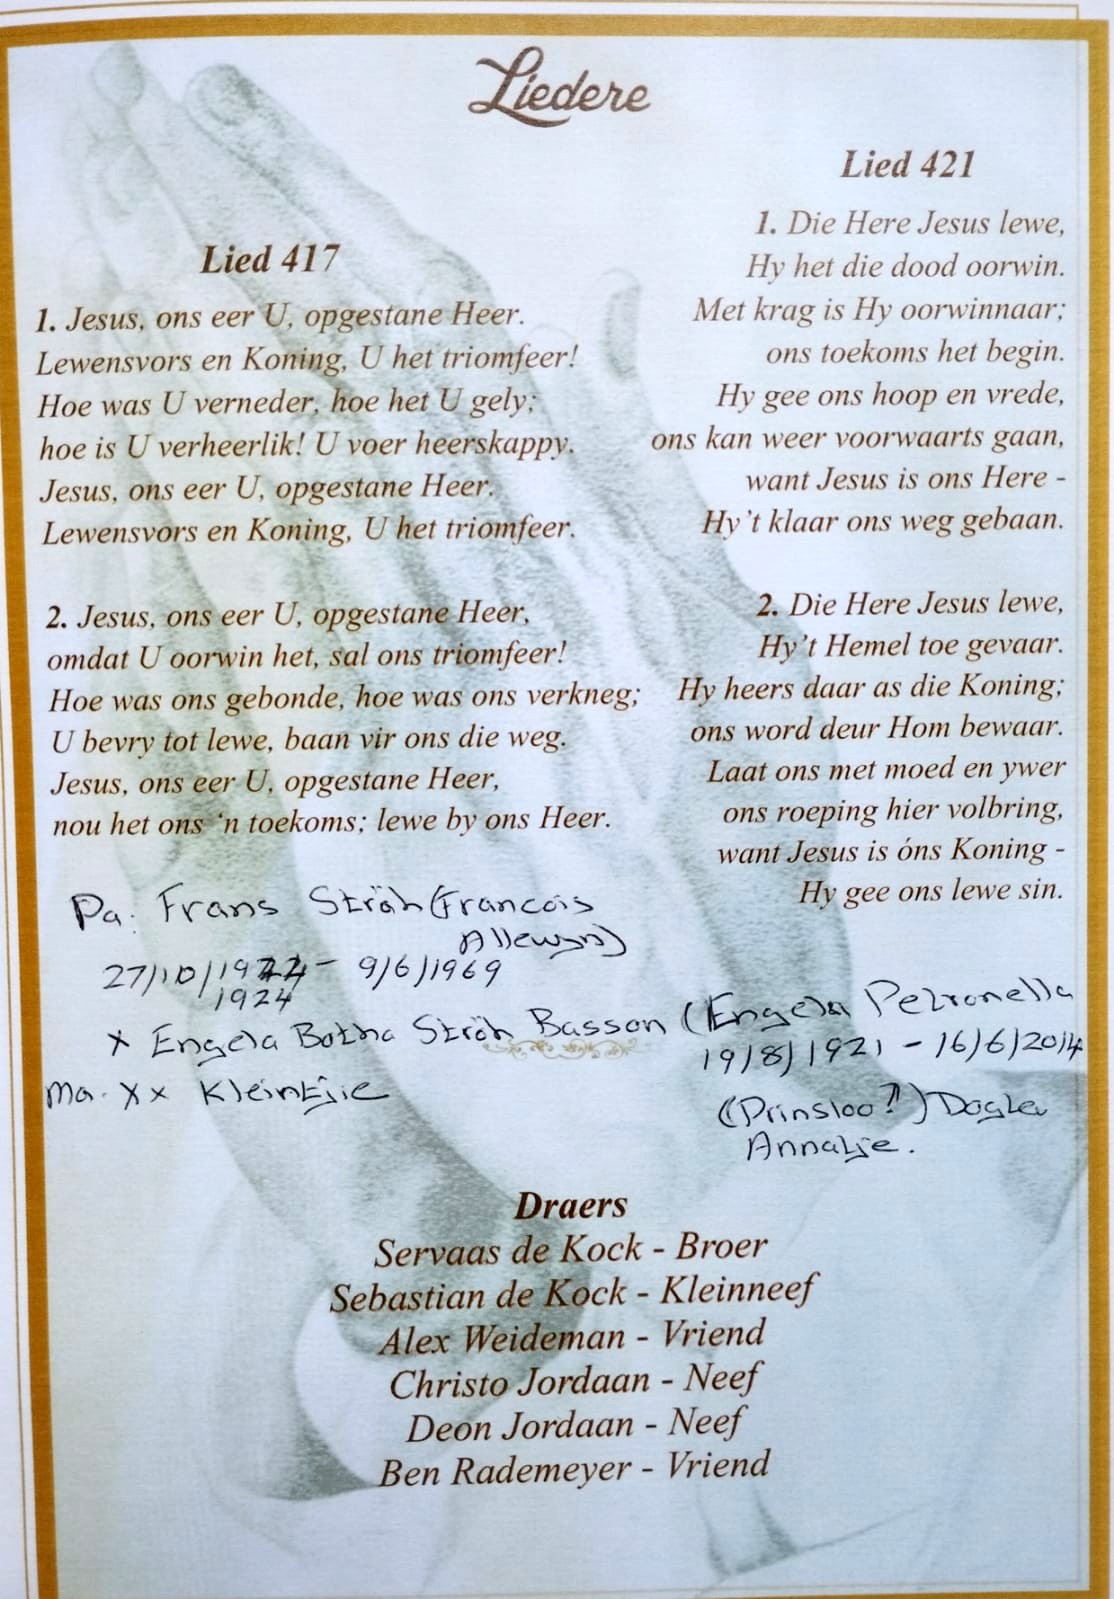 Liedere
Lied 417
1. Jesus, ons eer U, opgestane Heer.
Lewensvors en Koning, U het triomfeer!
Hoe was U verneder, hoe het U gely;
hoe is U verheerlik! U voer heerskappy.
Jesus, ons eer U, opgestane Heer.
Lewensvors en Koning, U het triomfeer.
2. Jesus, ons eer U, opgestane Heer,
omdat U oorwin het, sal ons triomfeer!
Hoe was ons gebonde, hoe was ons verkneg;
U bevry tot lewe, baan vir ons die weg.
Jesus, ons eer U, opgestane Heer,
nou het ons ‘n toekoms; lewe by ons Heer.
Lied 421
1. Die Here Jesus lewe,
Hy het die dood oorwin.
Met krag is Hy oorwinnaar;
ons toekoms het begin.
Hy gee ons hoop en vrede,
ons kan weer voorwaarts gaan,
want Jesus is ons Here -
Hy’t klaar ons weg gebaan.
2. Die Here Jesus lewe,
Hy’t Hemel toe gevaar.
Hy heers daar as die Koning;
ons word deur Hom bewaar.
Laat ons met moed en ywer
ons roeping hier volbring,
want Jesus is óns Koning -
Hy gee ons lewe sin.
Pa: Frans Ströh (Francois
Allewyn)
27/10/ - 9/6/1969
1924
x Engela Botha Ströh Basson (Engela Petronella
19/8/1921 - 16/6/2014
Ma. xx Kleintjie
(Prinsloo?) Dogter
Annatjie.
Draers
Servaas de Kock - Broer
Sebastian de Kock - Kleinneef
Alex Weideman - Vriend
Christo Jordaan - Neef
Deon Jordaan - Neef
Ben Rademeyer - Vriend